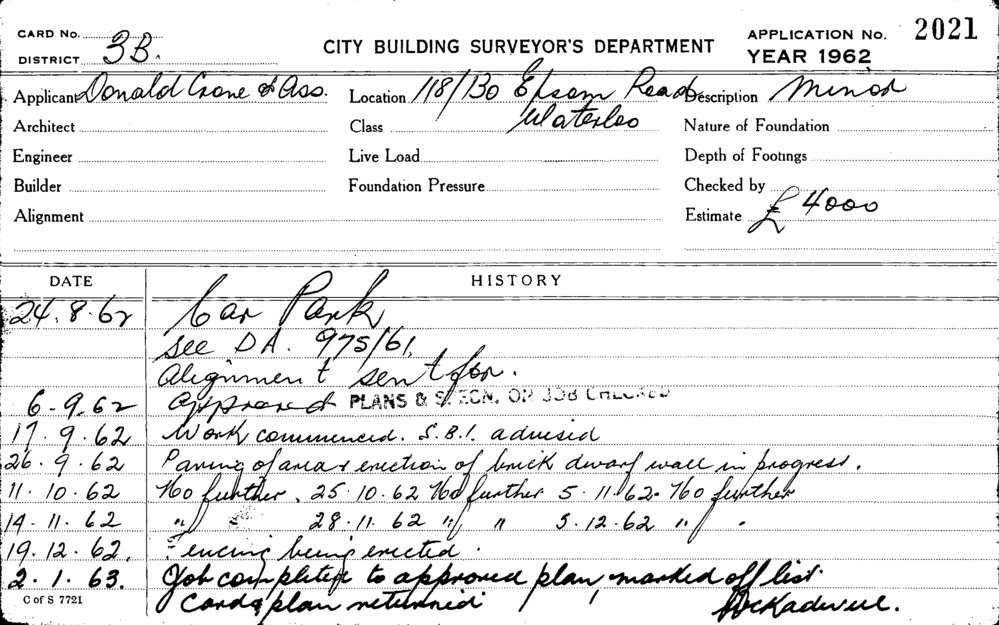 CARD No. 3B.
DISTRICT
CITY BUILDING SURVEYOR'S DEPARTMENT
APPLICATION No. 2021
YEAR 1962
Applicant Donald Crone & Ass.
Location 118/130 Epsom Road Waterloo
Description Minor
Architect
Class
Nature of Foundation
Engineer
Live Load
Depth of Footings
Builder
Foundation Pressure
Checked by
Alignment
Estimate £ 4000
DATE HISTORY
24.8.62 Car Park
See DA. 975/61.
Alignment sent for.
6-9-62 Approved PLANS & SPECN. ON JOB CHECKED
17.9.62 Work commenced. S.B.I. advised
26.9.62 Paving of area & erection of brick dwarf wall in progress.
11.10.62 No further. 25.10.62 No further 5.11.62. No further
14.11.62 " " 28.11.62 " " 5.12.62 " "
19.12.62. Fencing being erected.
2.1.63. Job completed to approved plan, marked off list.
Card & plan returned
C of S 7721